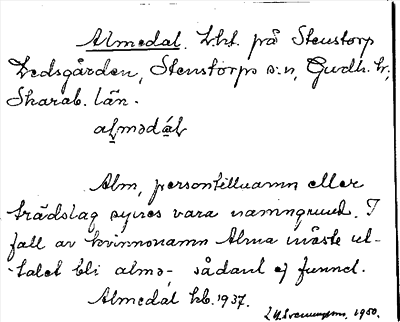 Almedal. Lht. på Stenstorp
Dedsgården, Stenstorps s:n, Gudh. h.,
Skarab. län.
almədál
Alm, persontillnamn eller
trädslag synes vara namngrund. I
fall av kvinnonamn Alma måste ut-
talet bli almə- sådant ej funnet.
Almedal hb. 1937.
1950.